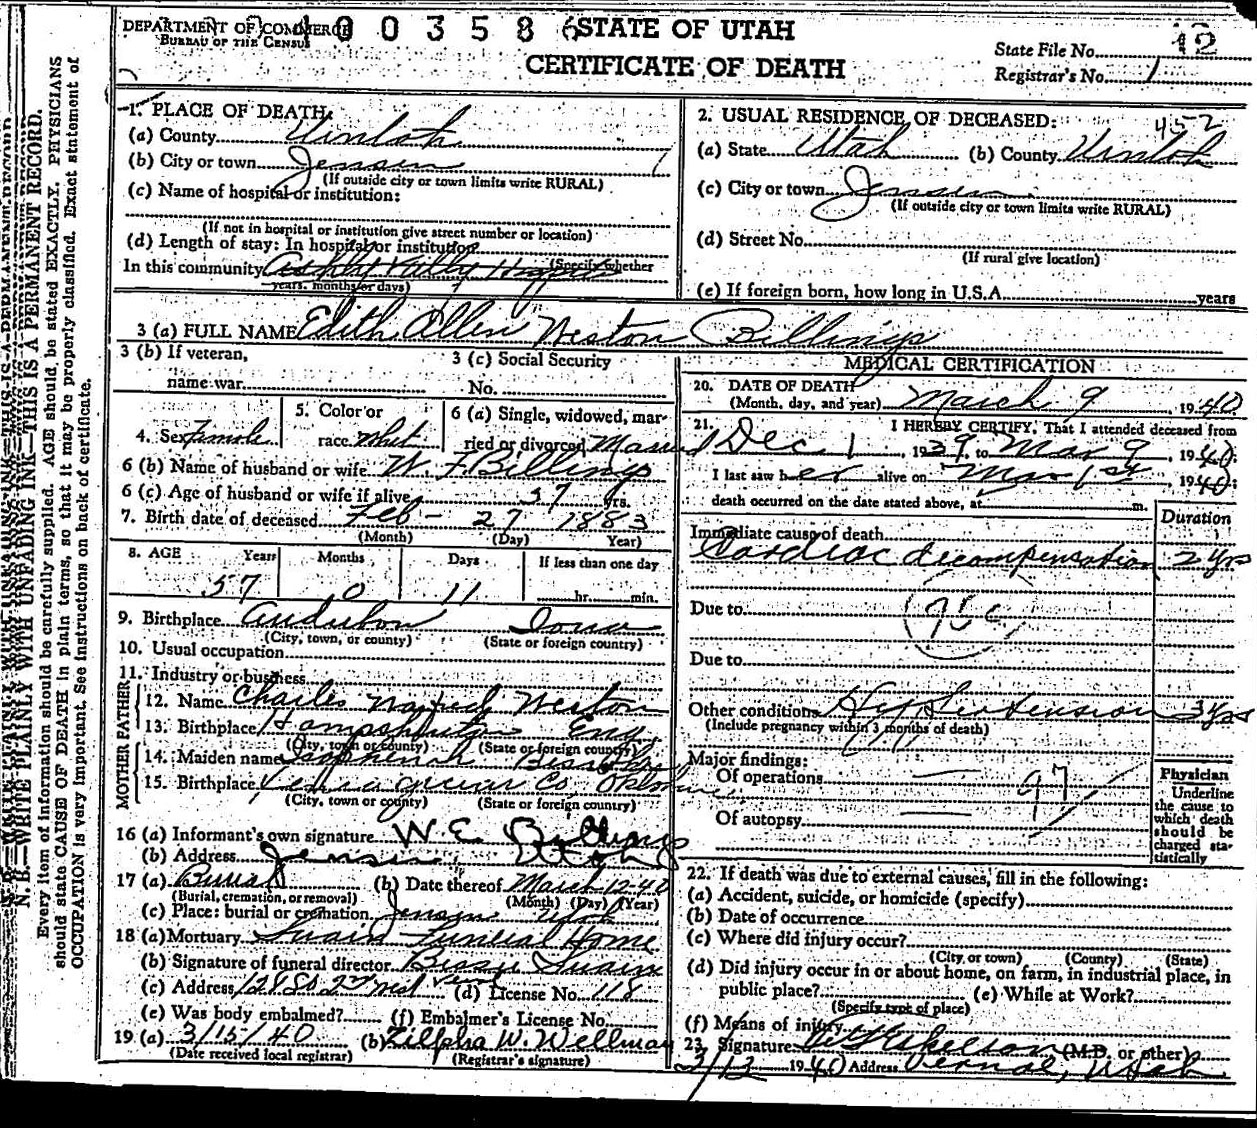 DEPARTMENT OF COMMERCE
BUREAU OF THE CENSUS
4003586
STATE OF UTAH
CERTIFICATE OF DEATH
State File No. 12
Registrar's No. 1
1. PLACE OF DEATH:
(a) County Uintah
(b) City or town Jensen
(If outside city or town limits write RURAL)
(c) Name of hospital or institution:
(If not in hospital or institution give street number or location)
(d) Length of stay: In hospital or institution
(Specify whether
In this community
years, months or days)
2. USUAL RESIDENCE OF DECEASED: 452
(a) State Utah (b) County Uintah
(c) City or town Jensen
(If outside city or town limits write RURAL)
(d) Street No.
(If rural give location)
(e) If foreign born, how long in U.S.A. years
3 (a) FULL NAME Edith Allen Weston Billings
3 (b) If veteran,
name war
3 (c) Social Security
No.
4. Sex Female
5. Color or
race Whit
6 (a) Single, widowed, mar-
ried or divorced Married
6 (b) Name of husband or wife W. F. Billings
6 (c) Age of husband or wife if alive 57 yrs.
7. Birth date of deceased Feb - 27 1883
(Month) (Day) Year)
8. AGE Years Months Days If less than one day
57 0 11 hr. min.
9. Birthplace Audubon Iowa
(City, town, or county) (State or foreign country)
10. Usual occupation
11. Industry or business
FATHER
12. Name Charles Weston
13. Birthplace Eng
(City, town or county) (State or foreign country)
MOTHER
14. Maiden name
15. Birthplace Co
(City, town or county) (State or foreign country)
16 (a) Informant's own signature W. E. Billings
(b) Address Jensen Utah
17 (a) Burial (b) Date thereof March-12-40
(Burial, cremation, or removal) (Month) (Day) (Year)
(c) Place: burial or cremation Jensen Utah
18 (a) Mortuary Swain Funeral Home
(b) Signature of funeral director Bessie Swain
(c) Address (d) License No. 118
(e) Was body embalmed? (f) Embalmer's License No.
19 (a) 3/15/40 (b) Zilpha W. Wellman
(Date received local registrar) (Registrar's signature)
MEDICAL CERTIFICATION
20. DATE OF DEATH
(Month, day, and year) March 9, 1940
21. I HEREBY CERTIFY, That I attended deceased from
Dec. 1, 1939, to Mar 9, 1940;
I last saw her alive on Mar 1st, 1940;
death occurred on the date stated above, at m.
Duration
Immediate cause of death
Cardiac decompensation 2 yrs
Due to
95c
Due to
Other conditions Hypertension 3 yrs
(Include pregnancy within 3 months of death)
Major findings:
Of operations
97
Of autopsy
Physician
Underline
the cause to
which death
should be
charged sta-
tistically
22. If death was due to external causes, fill in the following:
(a) Accident, suicide, or homicide (specify)
(b) Date of occurrence
(c) Where did injury occur?
(City, or town) (County) (State)
(d) Did injury occur in or about home, on farm, in industrial place, in
public place? (e) While at Work?
(Specify type of place)
(f) Means of injury
23. Signature (M.D. or other)
3/13 1940 Address Vernal, Utah
N. B.—WRITE PLAINLY WITH UNFADING INK—THIS IS A PERMANENT RECORD.
Every item of information should be carefully supplied. AGE should be stated EXACTLY. PHYSICIANS
should state CAUSE OF DEATH in plain terms, so that it may be properly classified. Exact statement of
OCCUPATION is very important. See instructions on back of certificate.